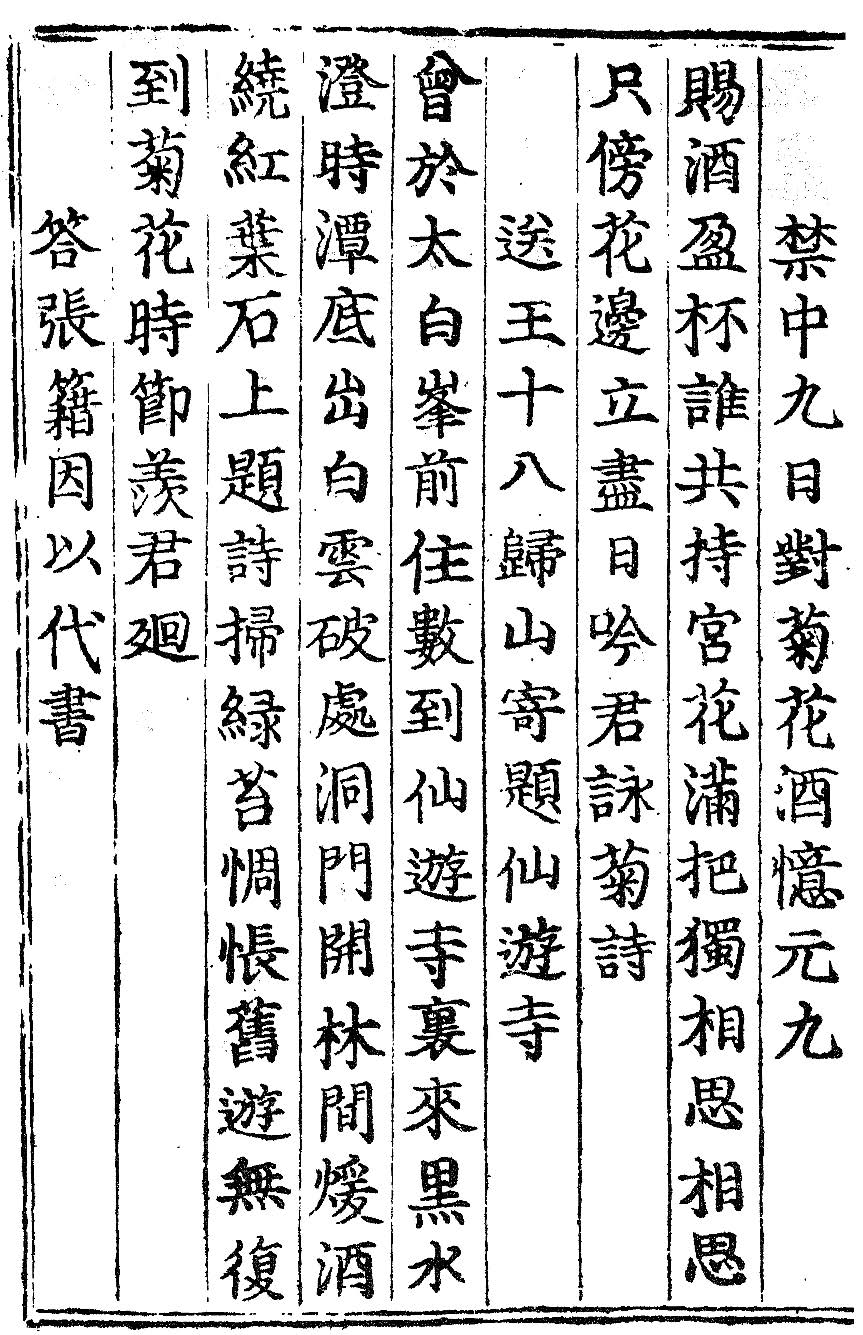 禁中九日對菊花酒憶元九
賜酒盈杯誰共持宮花滿把獨相思相思
只傍花邊立盡日吟君詠菊詩
送王十八歸山寄題仙遊寺
曾於太白峯前住數到仙遊寺裏來黒水
澄時潭底出白雲破處洞門開林間煖酒
繞紅葉石上題詩掃緑苔惆悵舊遊無復
到菊花時節羨君廻
答張籍因以代書